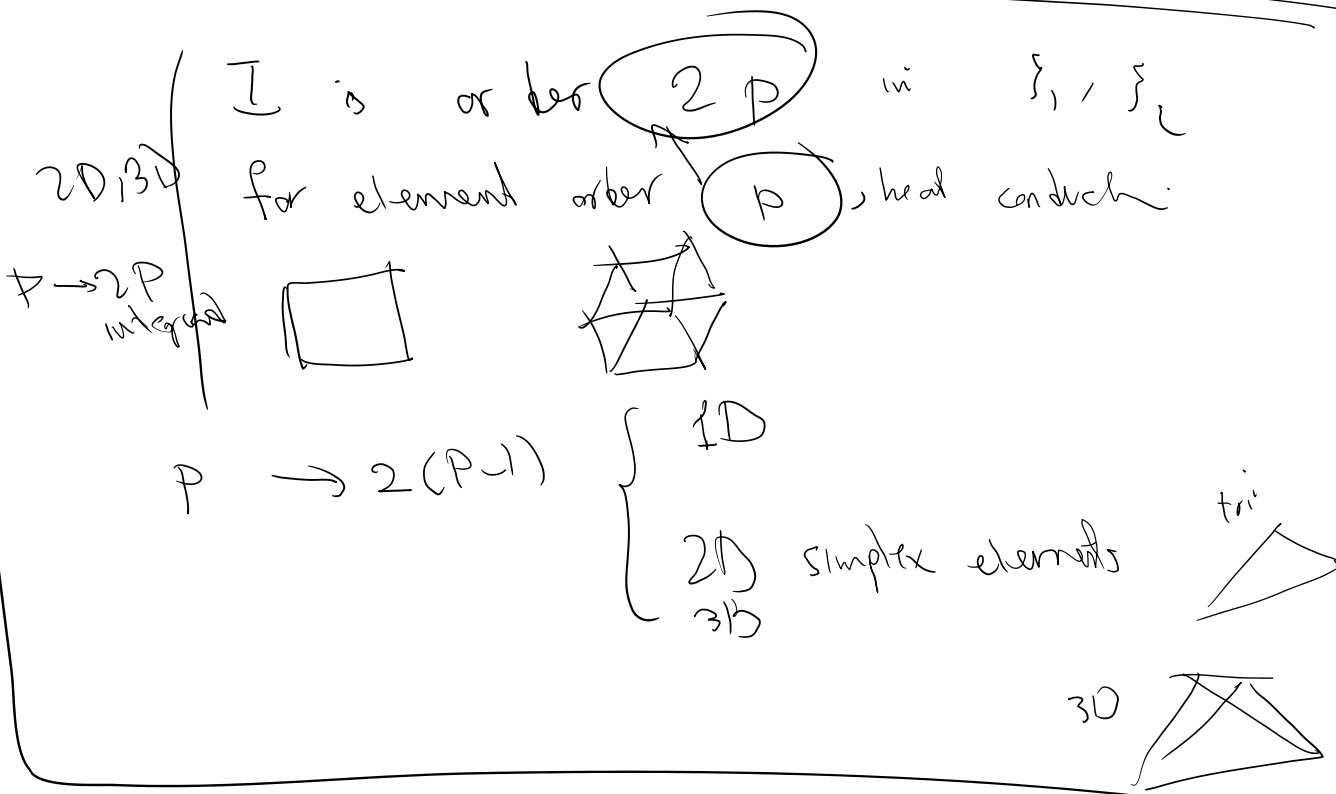 I is order 2p in ξ₁, ξ₂
2D,3D for element order p, heat conduch
P → 2P
integrand
p → 2(P-1)
1D
2D simplex elements
3D
tri
3D